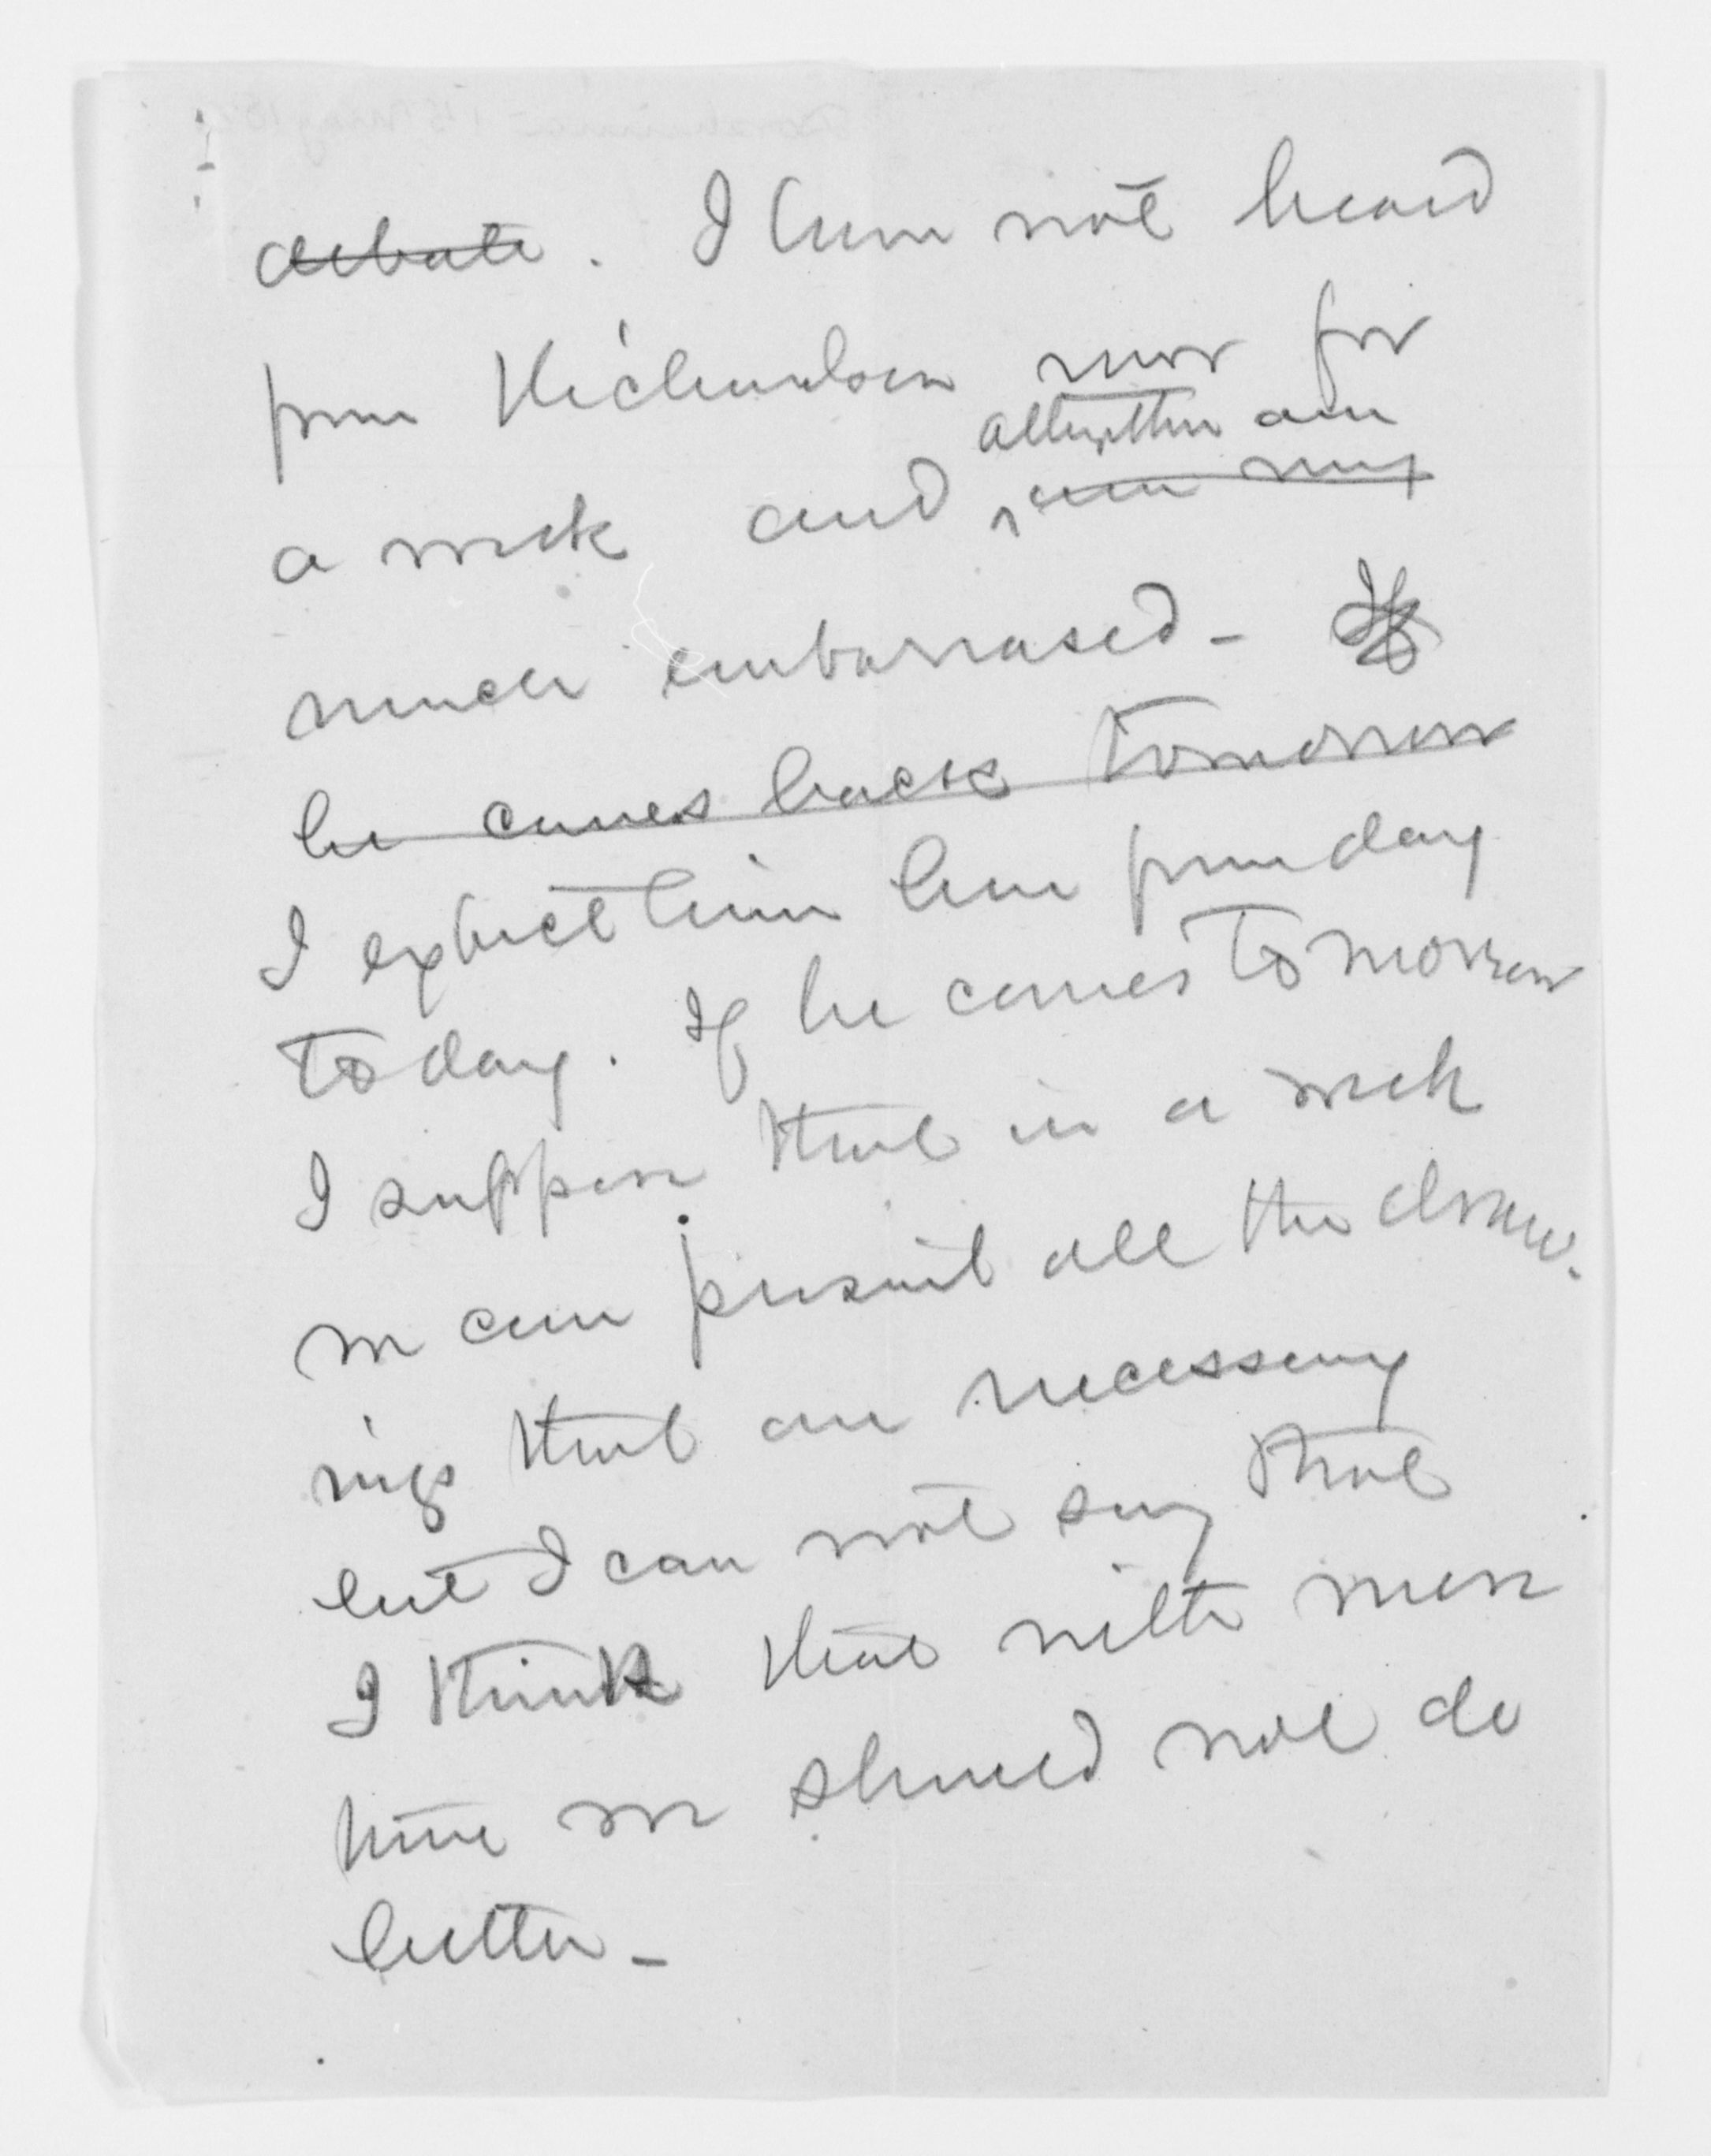 debate. I have not heard
from Richardson now for
altogether am
a week and am very
much embarrased - If
he comes back tomorrow
I expect him here from day
to day. If he comes tomorrow
I suppose that in a week
we can present all the draw-
ings that are necessary
but I can not say that
I think that with more
time we should not do
better -